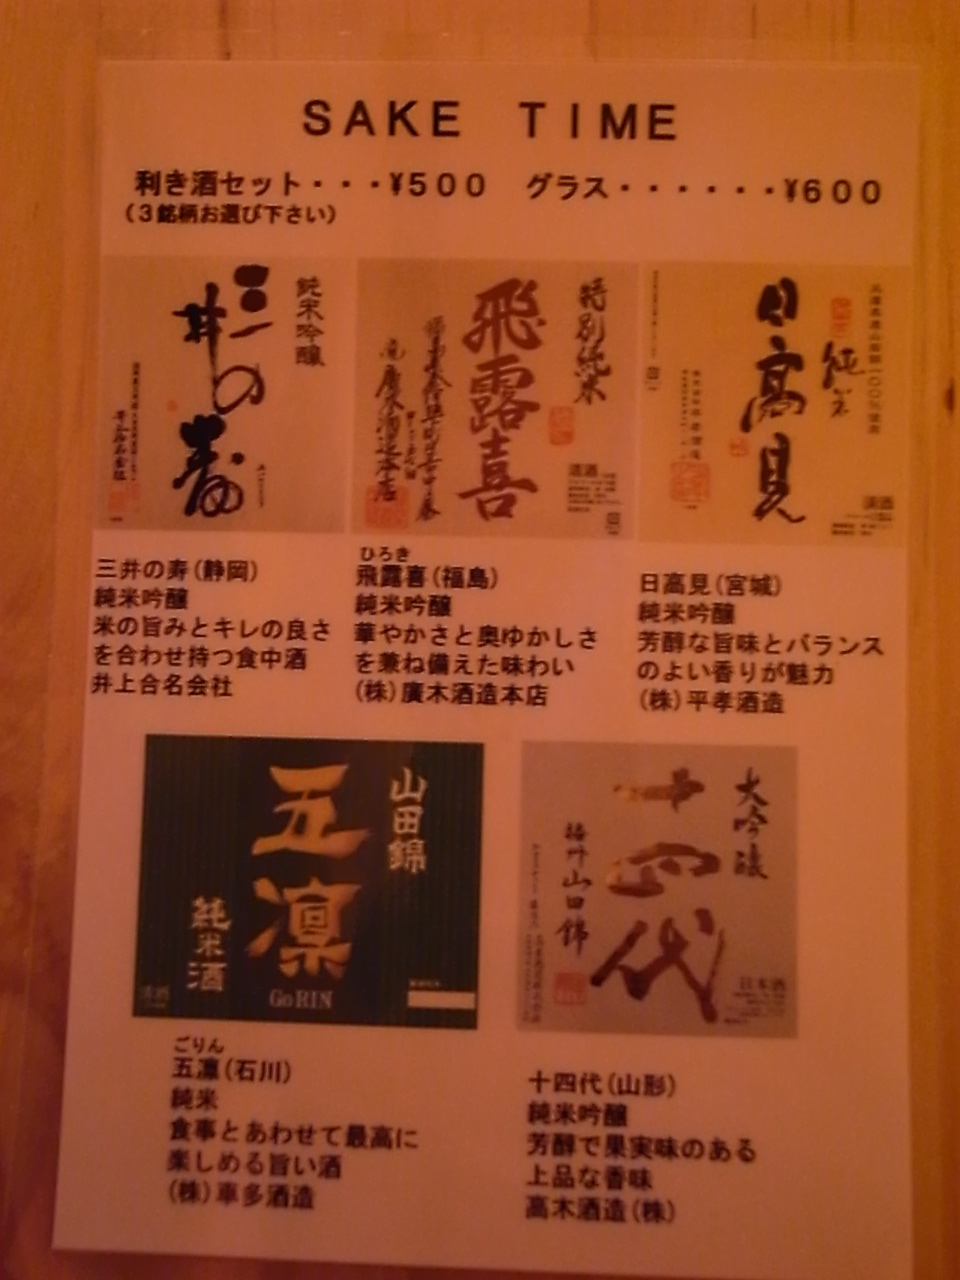 SAKE TIME
利き酒セット・・・¥500 グラス・・・・・・¥600
（3銘柄お選び下さい）
純米吟醸
三井の寿
特別純米
飛露喜
清酒
純米
日高見
清酒
三井の寿(静岡)
純米吟醸
米の旨みとキレの良さ
を合わせ持つ食中酒
井上合名会社
ひろき
飛露喜(福島)
純米吟醸
華やかさと奥ゆかしさ
を兼ね備えた味わい
(株)廣木酒造本店
日高見(宮城)
純米吟醸
芳醇な旨味とバランス
のよい香りが魅力
(株)平孝酒造
山田錦
五凛
純米酒
GoRIN
清酒
大吟醸
十四代
播州山田錦
日本酒
ごりん
五凛(石川)
純米
食事とあわせて最高に
楽しめる旨い酒
(株)車多酒造
十四代(山形)
純米吟醸
芳醇で果実味のある
上品な香味
高木酒造(株)